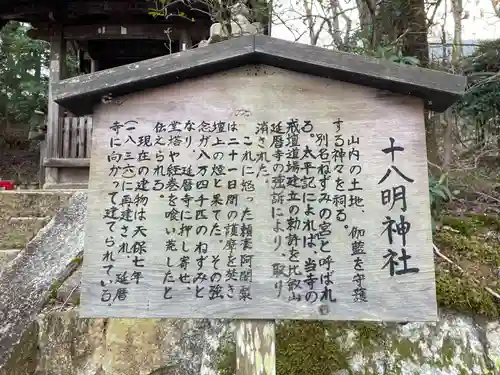 十八明神社
山内の土地、伽藍を守護
する神々を祠る。
別名ねずみの宮と呼ばれ
る。太平記によれば、当寺の
戒壇道場建立の勅許を比叡山
延暦寺の強訴により、取り
消された。
これに怒った頼豪阿闍梨
は二十一日間の護摩を焚き
壇上の煙と果てた。その強
念が八万四千匹のねずみと
なり、延暦寺に押しよせ、
堂塔や経巻を喰い荒したと
伝える。
現在の建物は天保七年
(一八三六)に再建され、延暦
寺に向かって建てられている。